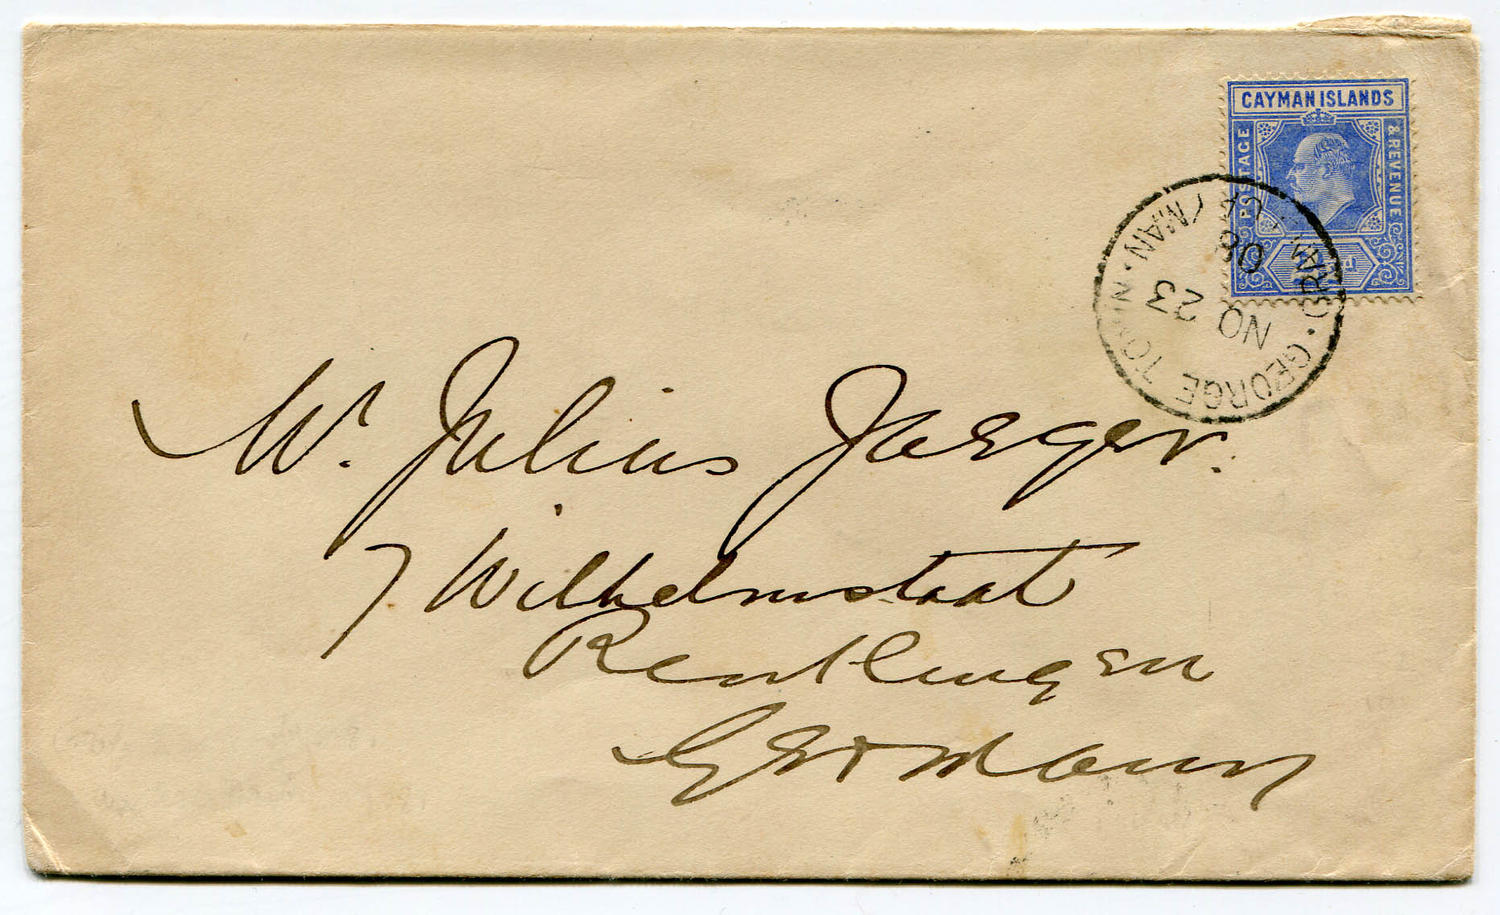 CAYMAN ISLANDS
POSTAGE
& REVENUE
d
GEORGE TOWN · GRAND CAYMAN ·
NO 23
08
Mr. Julius Jaeger.
7 Wilhelmstaat
Reutlingen
Germany